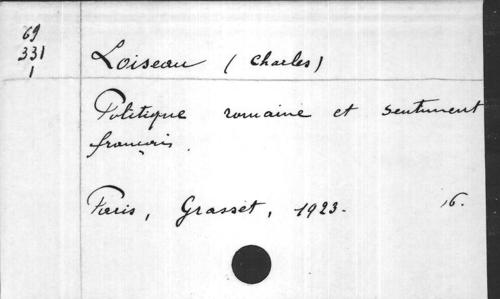 69
331
1
Loiseau (Charles)
Politique romaine et sentiment
français.
Paris, Grasset, 1923. 16.